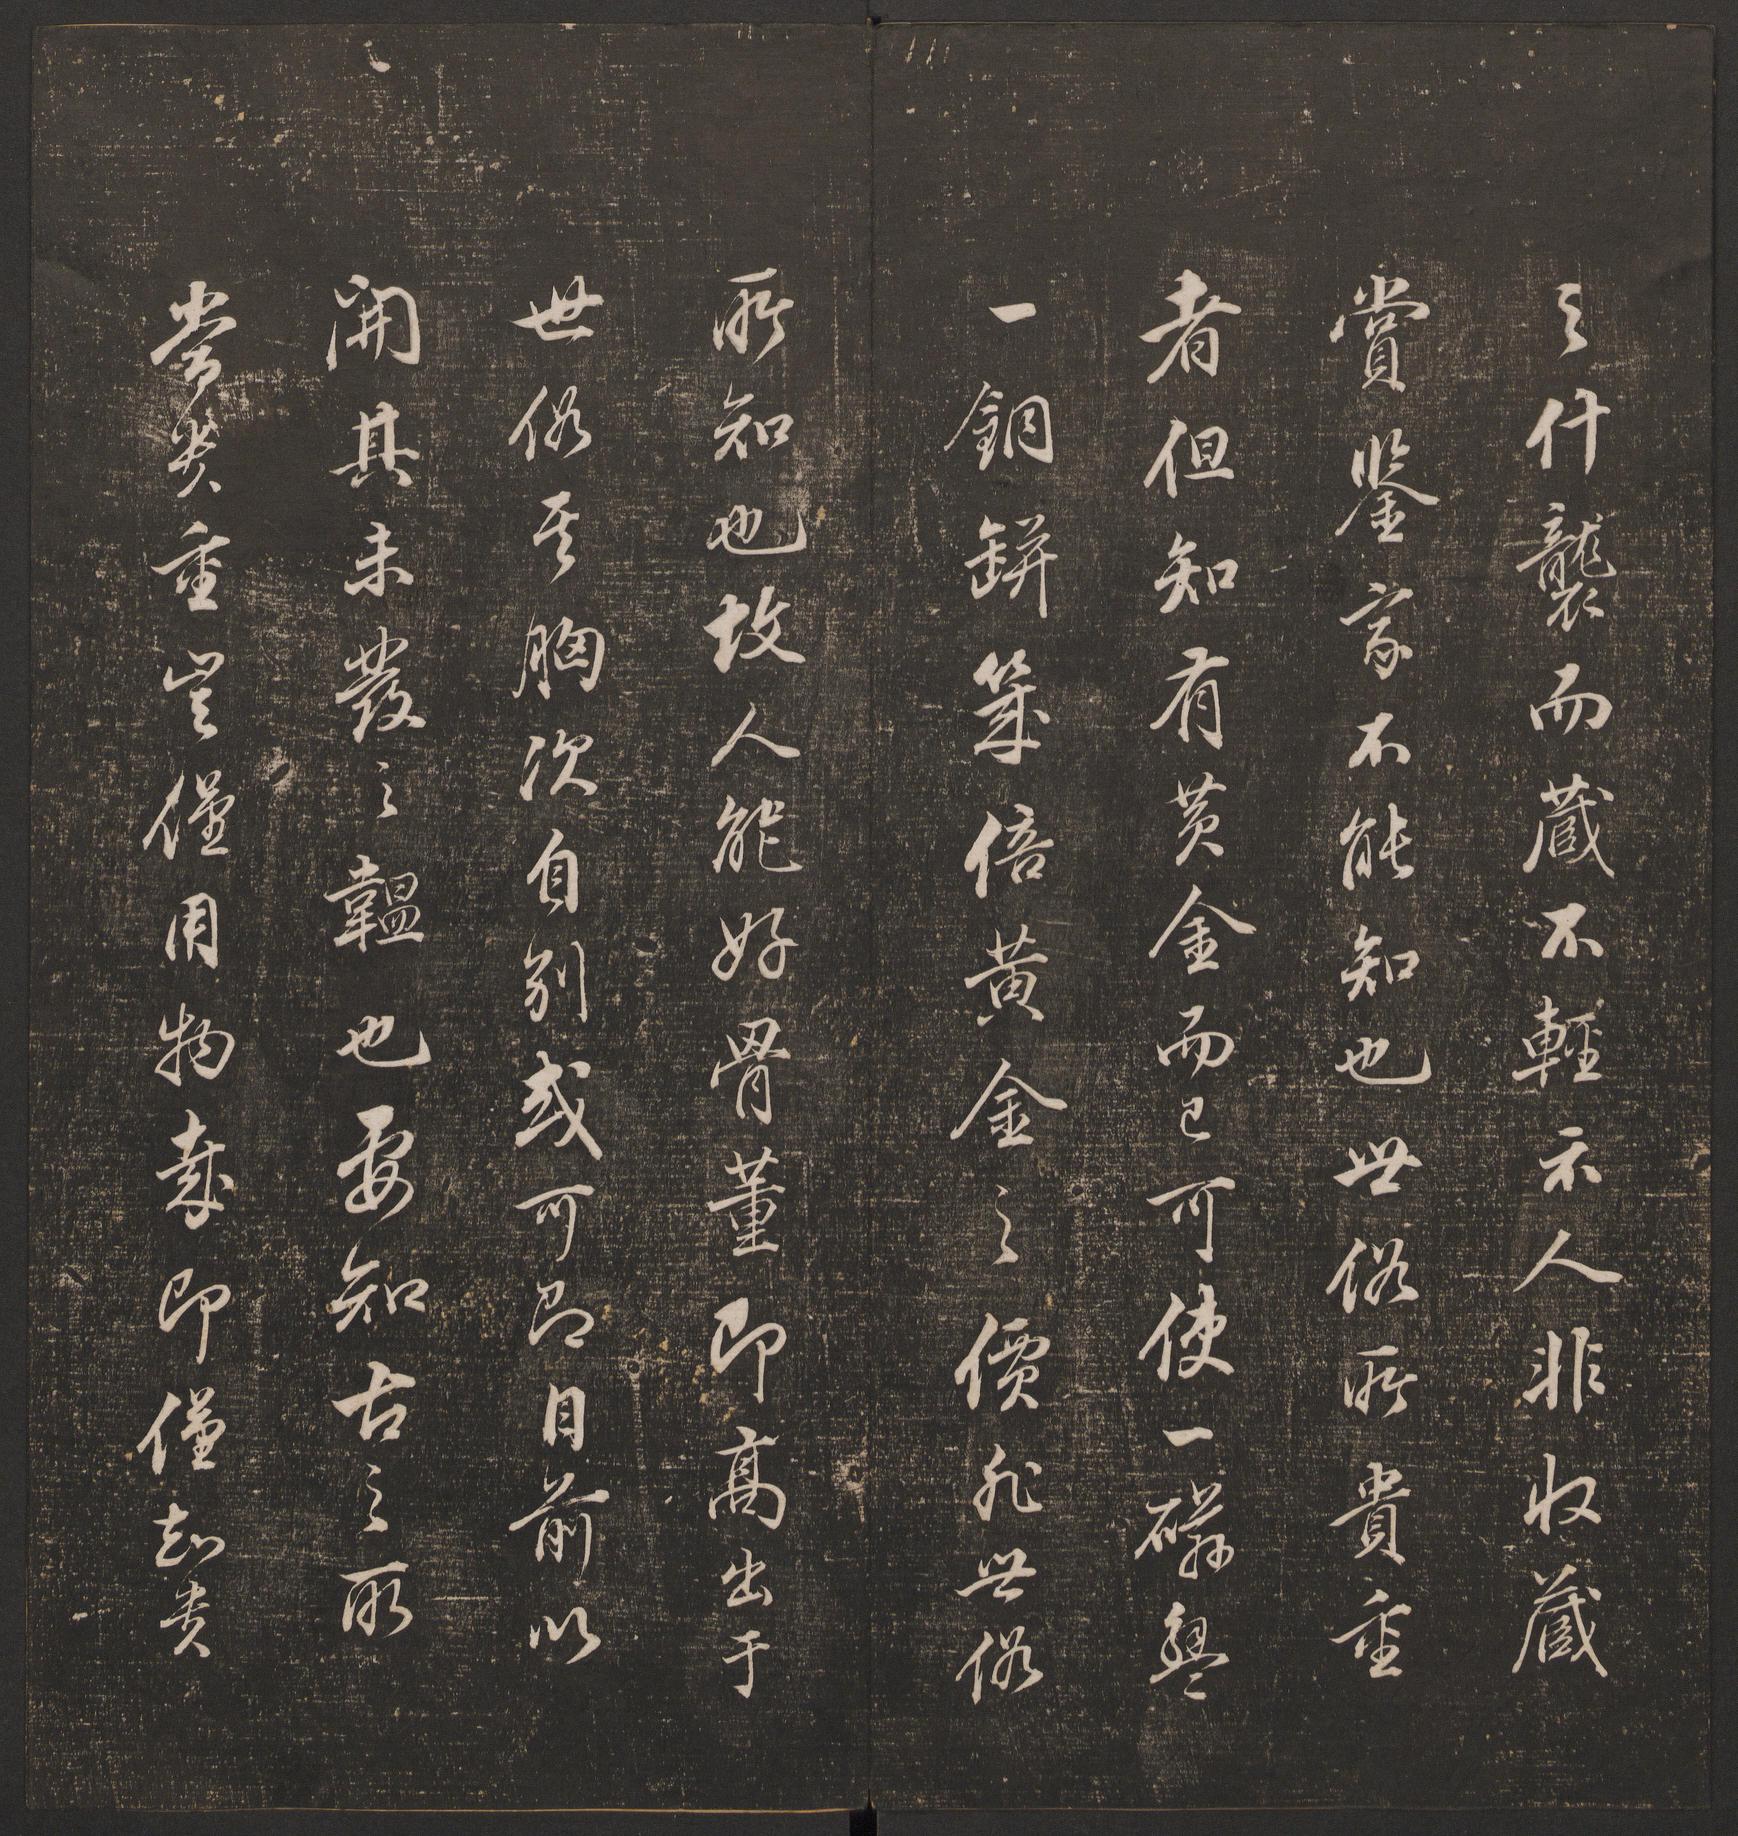 之什襲而藏不輕示人非收藏
賞鑒家不能知也世俗所貴重
者但知有黃金而已可使一磁甌
一銅缾幾倍黃金之價非世俗
所知也故人能好骨董即高出于
世俗其胸次自別或可即目前以
開其未發之韞也要知古之所
貴重豈僅用物哉即僅知貴